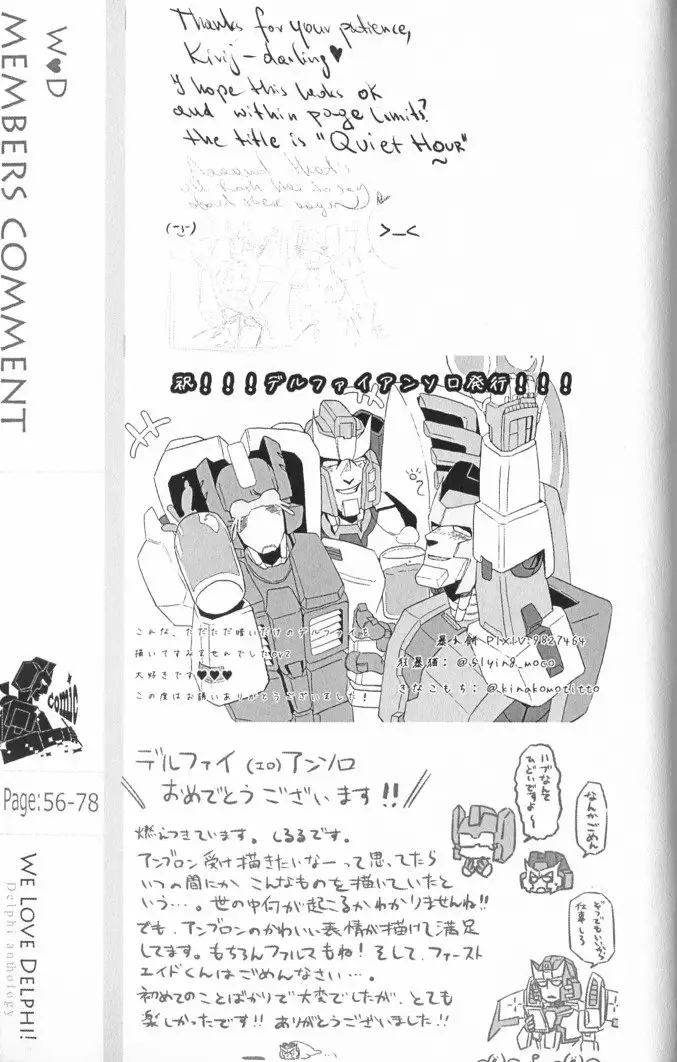 W♥D
MEMBERS COMMENT
Thanks for your patience,
Kivij-darling♥
I hope this looks ok
and within page limits?
the title is "Quiet Hour"
(-_-)
>_<
祝!!!デルファイアンソロ発行!!!
こんな、ただただ暗いだけのデルファイを
描いてすみませんでした
大好きです♥♥♥
この度はお誘いありがとうございました!
PIXIV:9827464
狂瀑猫:@flying_moco
きなこもち:@kinakomotitto
comic
Page:56-78
WE LOVE DELPHI!
Delphi anthology
デルファイ(エロ)アンソロ
おめでとうございます!!
燃えつきています。しるるです。
アンブロン受け描きたいなーって思ってたら
いつの間にかこんなものを描いていたと
いう…。世の中何が起こるかわかりませんね!!
でも、アンブロンのかわいい表情が描けて満足
してます。もちろんファルマもね!そして、ファースト
エイドくんはごめんなさい…。
初めてのことばかりで大変でしたが、とても
楽しかったです!!ありがとうございました!!
ハブなんて
ひどいですよ~
なんかごめん
どうでもいいから
仕事しろ